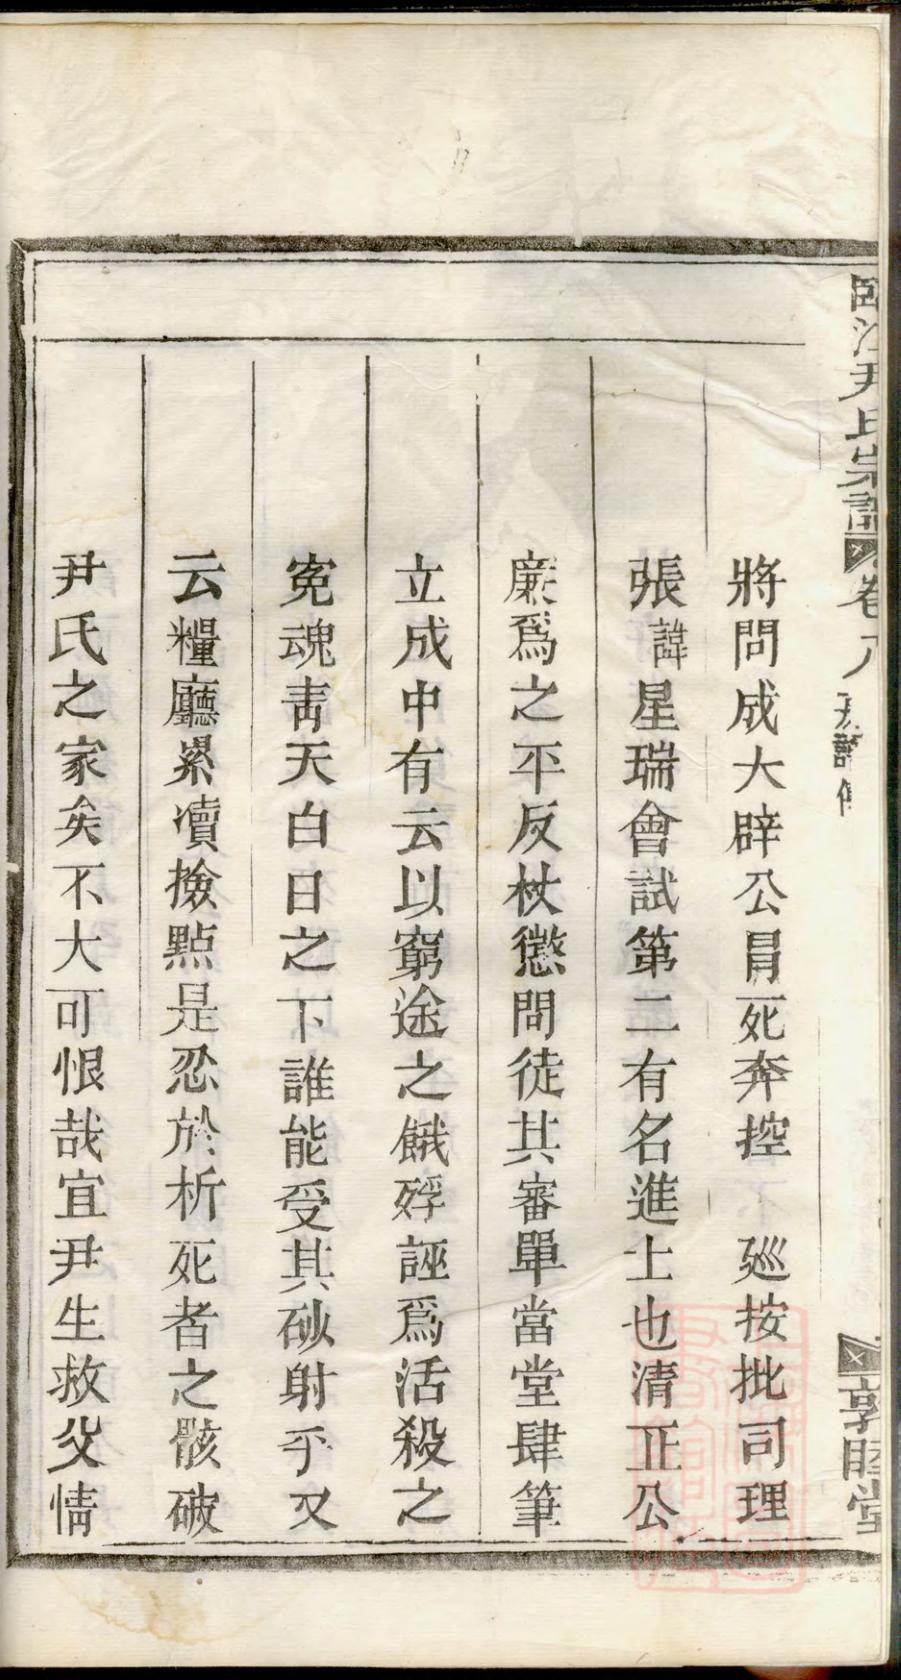 臨江尹氏宗譜 卷八 敦睦堂
將問成大辟公冒死奔控 廵按批司理
張諱星瑞會試第二有名進士也清正公
廉爲之平反杖懲問徒其審單當堂肆筆
立成中有云以窮途之餓殍誣爲活殺之
寃魂靑天白日之下誰能受其砂射乎又
云糧廳累瀆撿點是忍於析死者之骸破
尹氏之家矣不大可恨哉宜尹生救父情